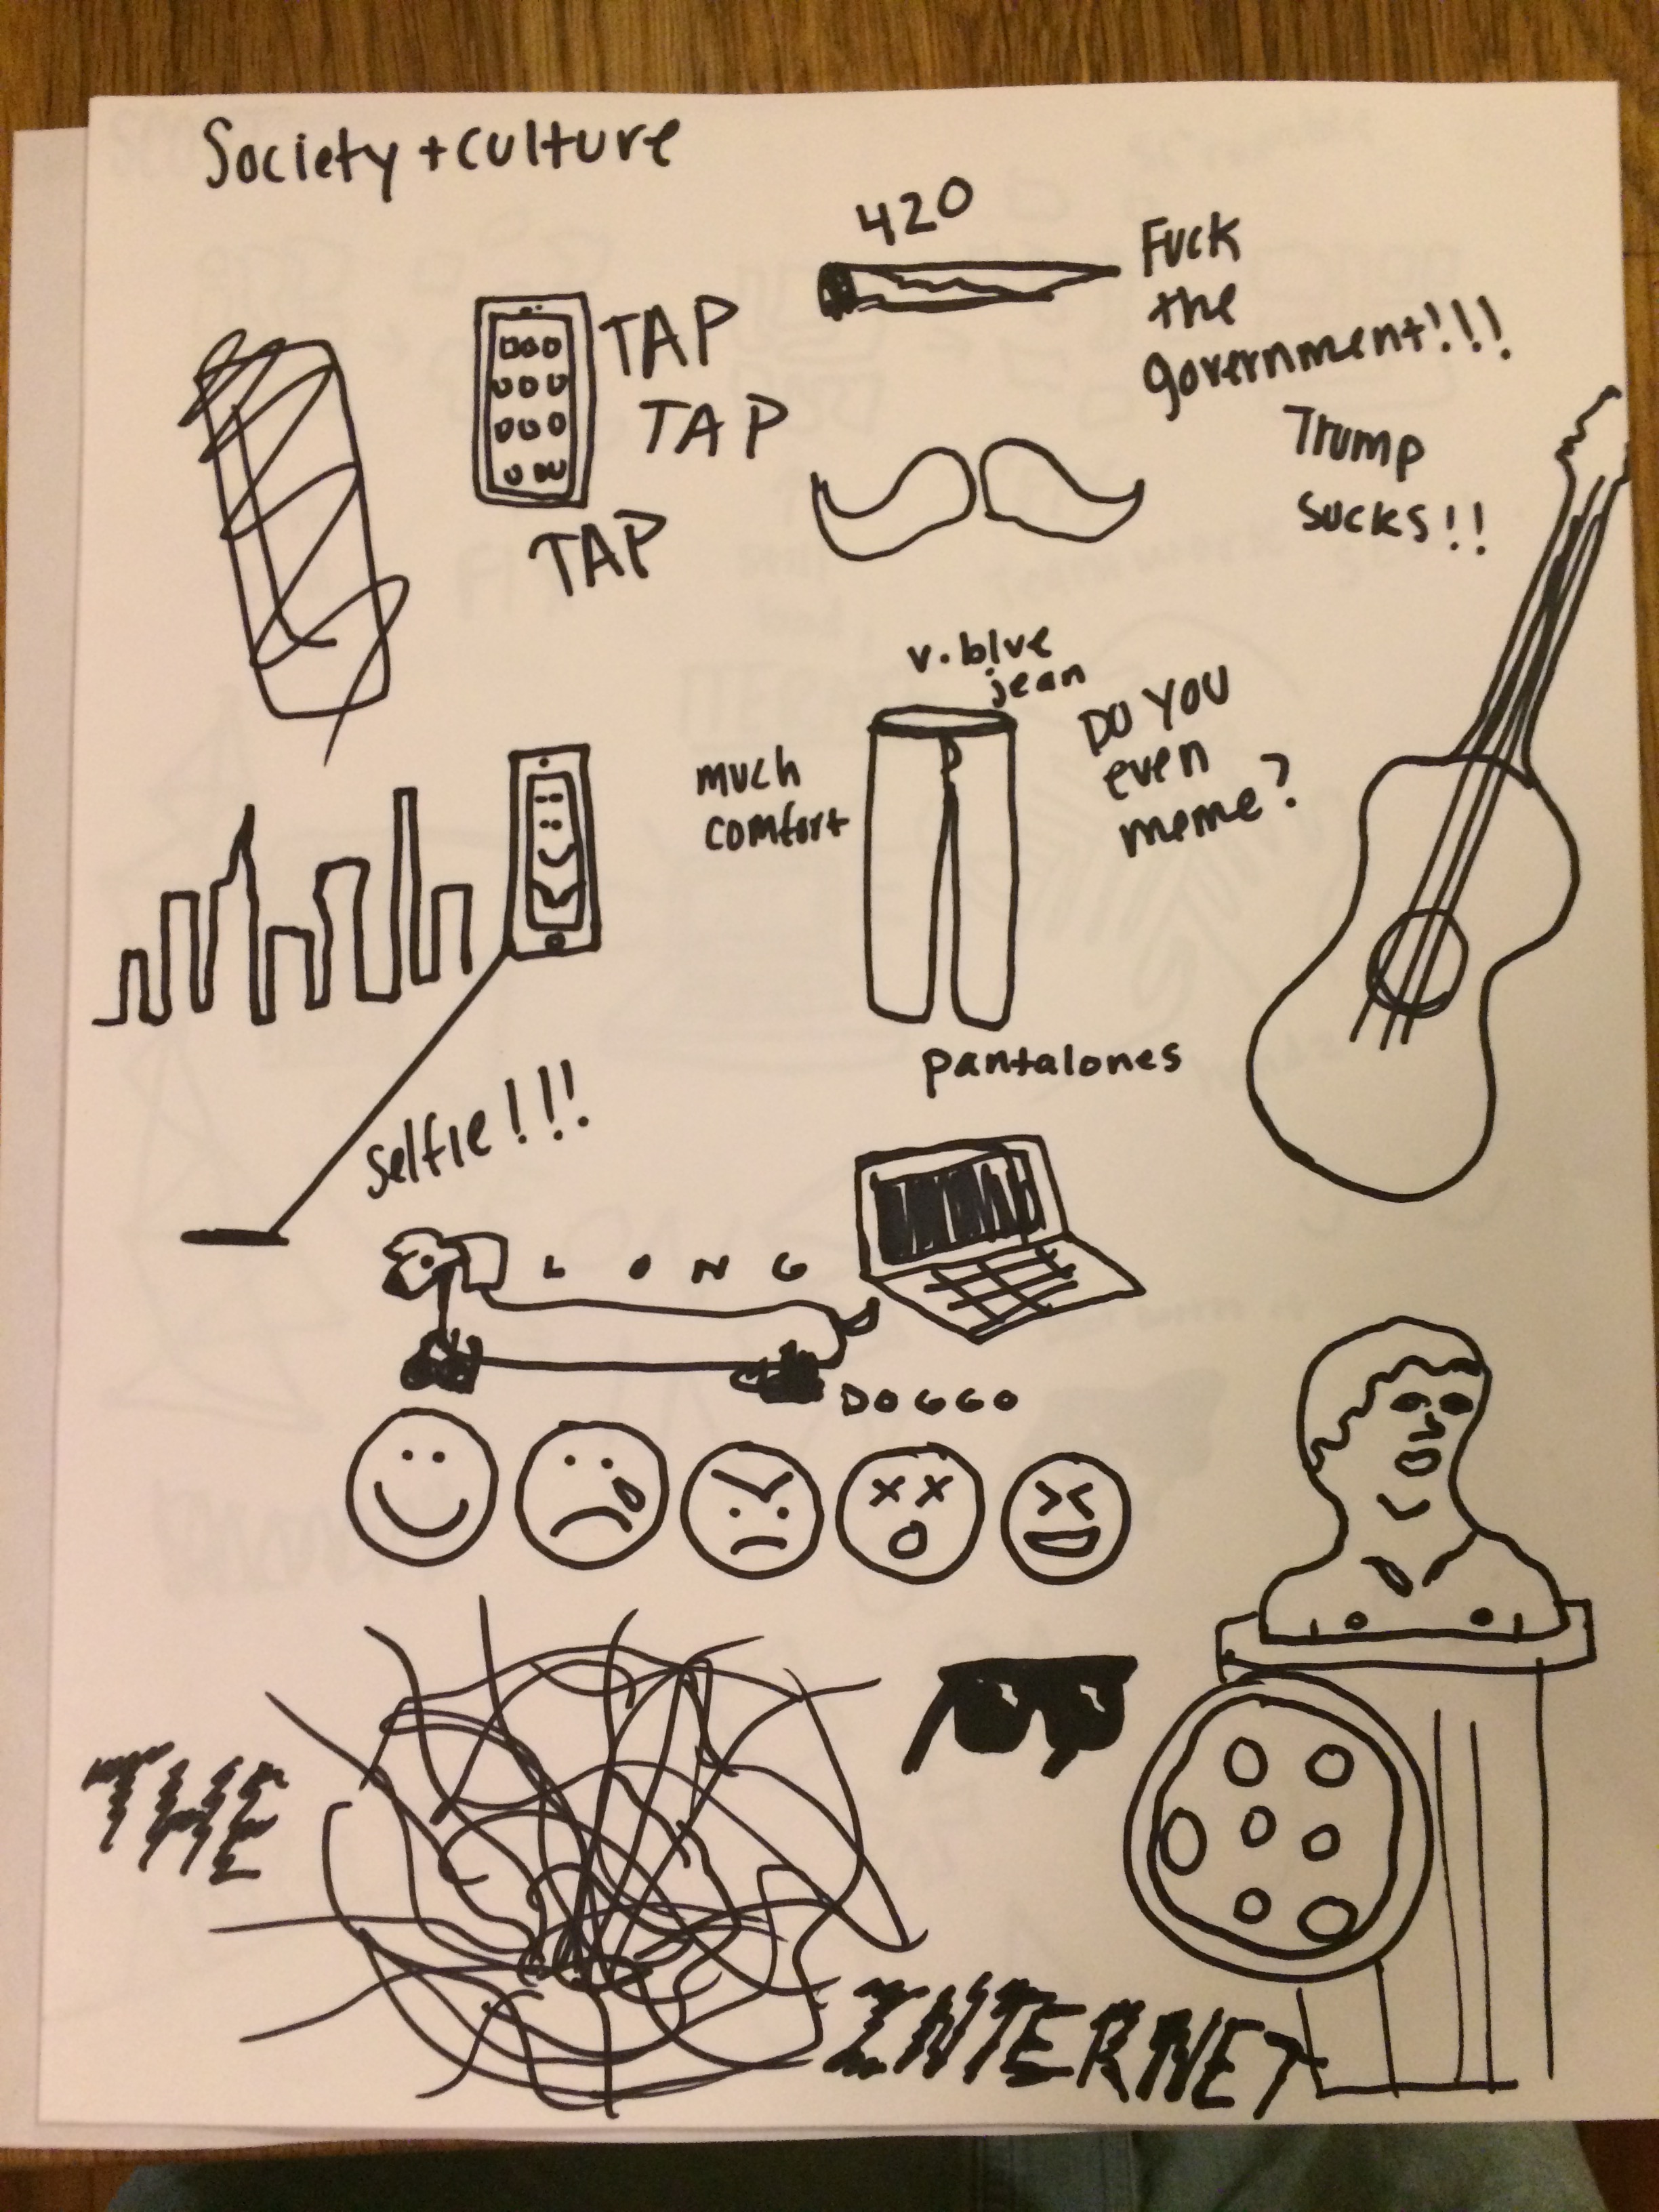 Society + culture
420
Fuck
the
government!!!
TAP
TAP
TAP
Trump
sucks!!
v. blue
jean
DO YOU
even
meme?
much
comfort
pantalones
Selfie!!!
L O N G
DOGGO
THE
INTERNET